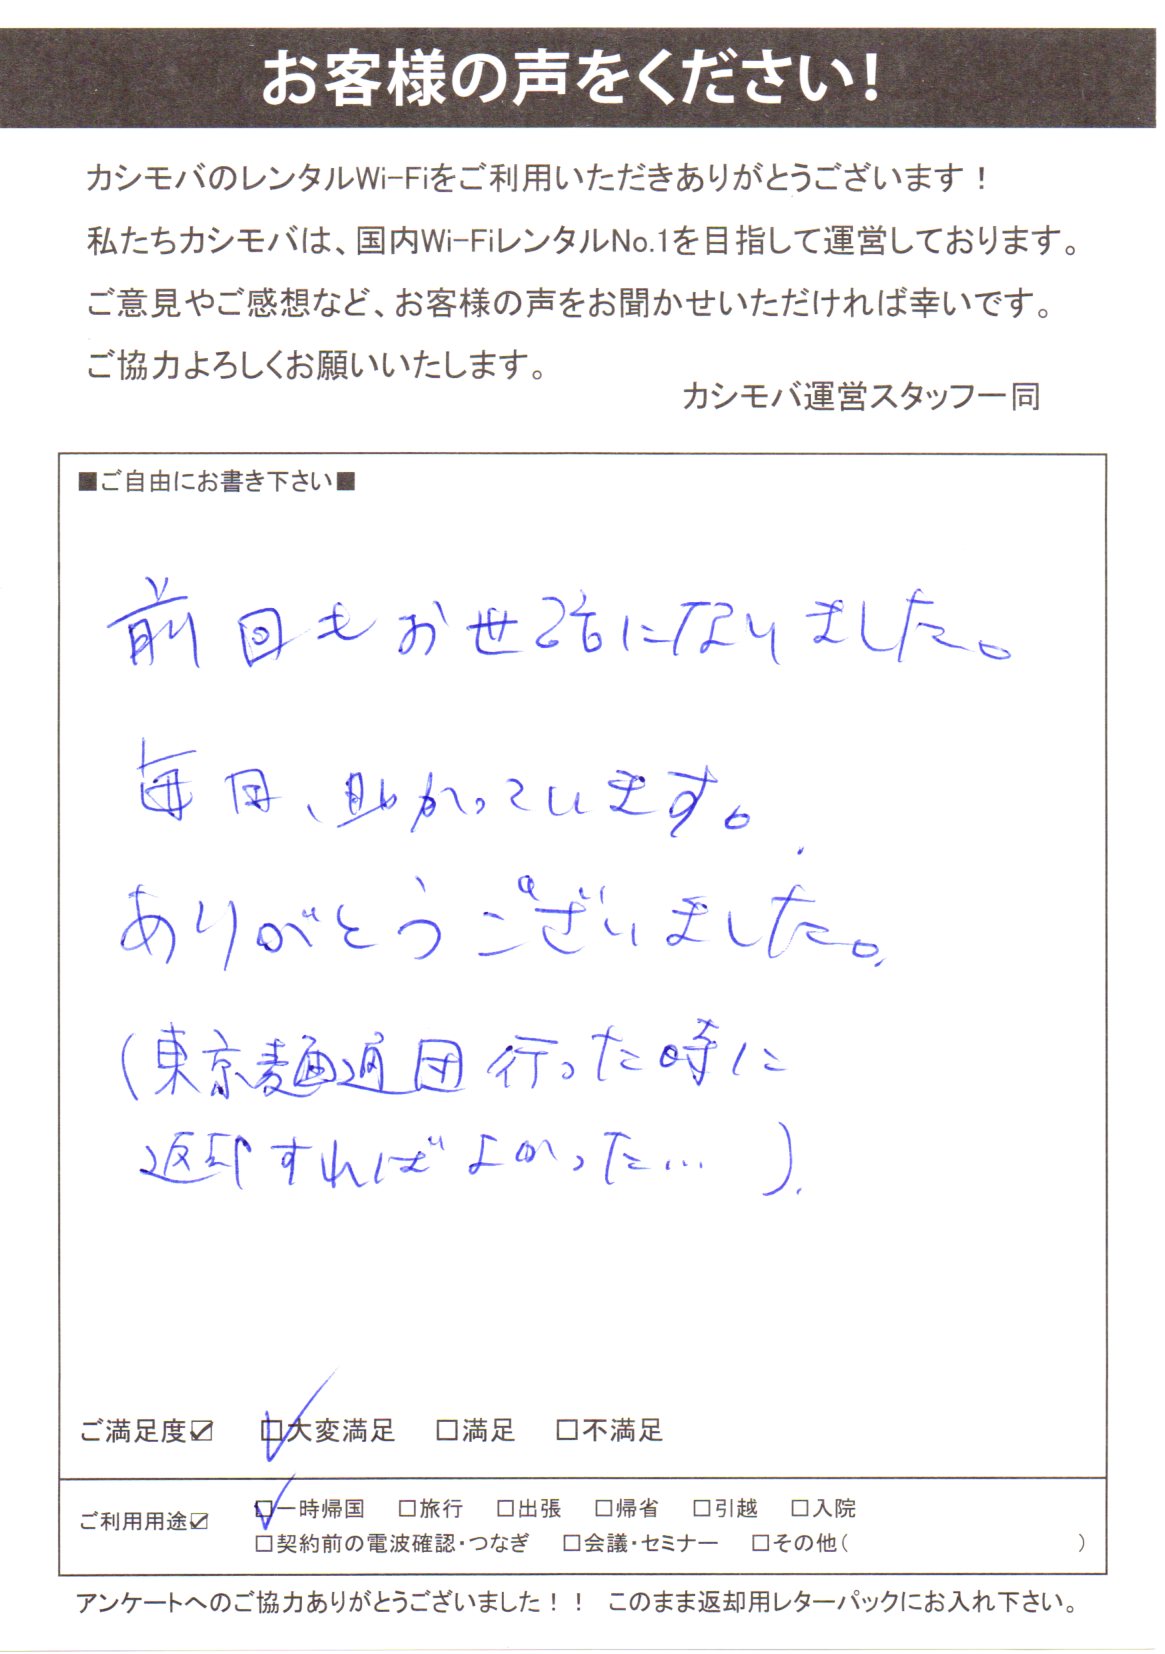 お客様の声をください!
カシモバのレンタルWi-Fiをご利用いただきありがとうございます!
私たちカシモバは、国内Wi-FiレンタルNo.1を目指して運営しております。
ご意見やご感想など、お客様の声をお聞かせいただければ幸いです。
ご協力よろしくお願いいたします。
カシモバ運営スタッフ一同
■ご自由にお書き下さい■
前回もお世話になりました。
毎日、助かっています。
ありがとうございました。
(東京麺通団行った時に
返却すればよかった…)
ご満足度☑ ☑大変満足 □満足 □不満足
ご利用用途☑ ☑一時帰国 □旅行 □出張 □帰省 □引越 □入院
□契約前の電波確認・つなぎ □会議・セミナー □その他( )
アンケートへのご協力ありがとうございました!! このまま返却用レターパックにお入れ下さい。